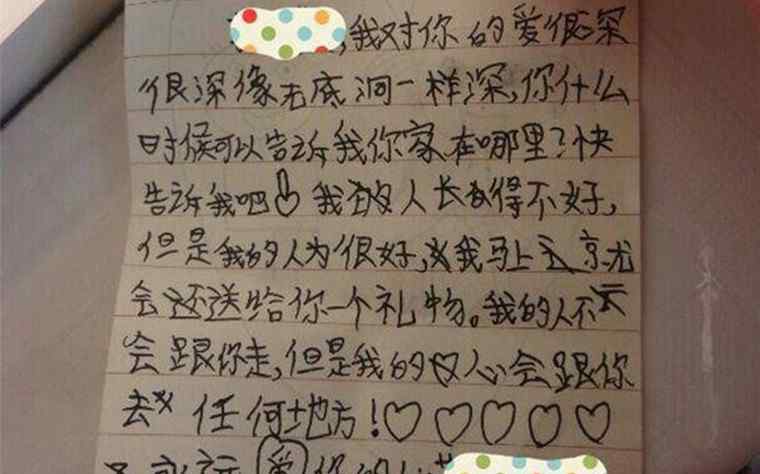 ,我对你的爱很深
很深像无底洞一样深,你什么
时候可以告诉我你家在哪里?快
告诉我吧 我 人长 得不好,
但是我的人为很好,我马上 就
会 还送给你一个礼物。我的人不
会跟你走,但是我的心会跟你
去 任何地方!♡♡♡♡♡
永远爱你的